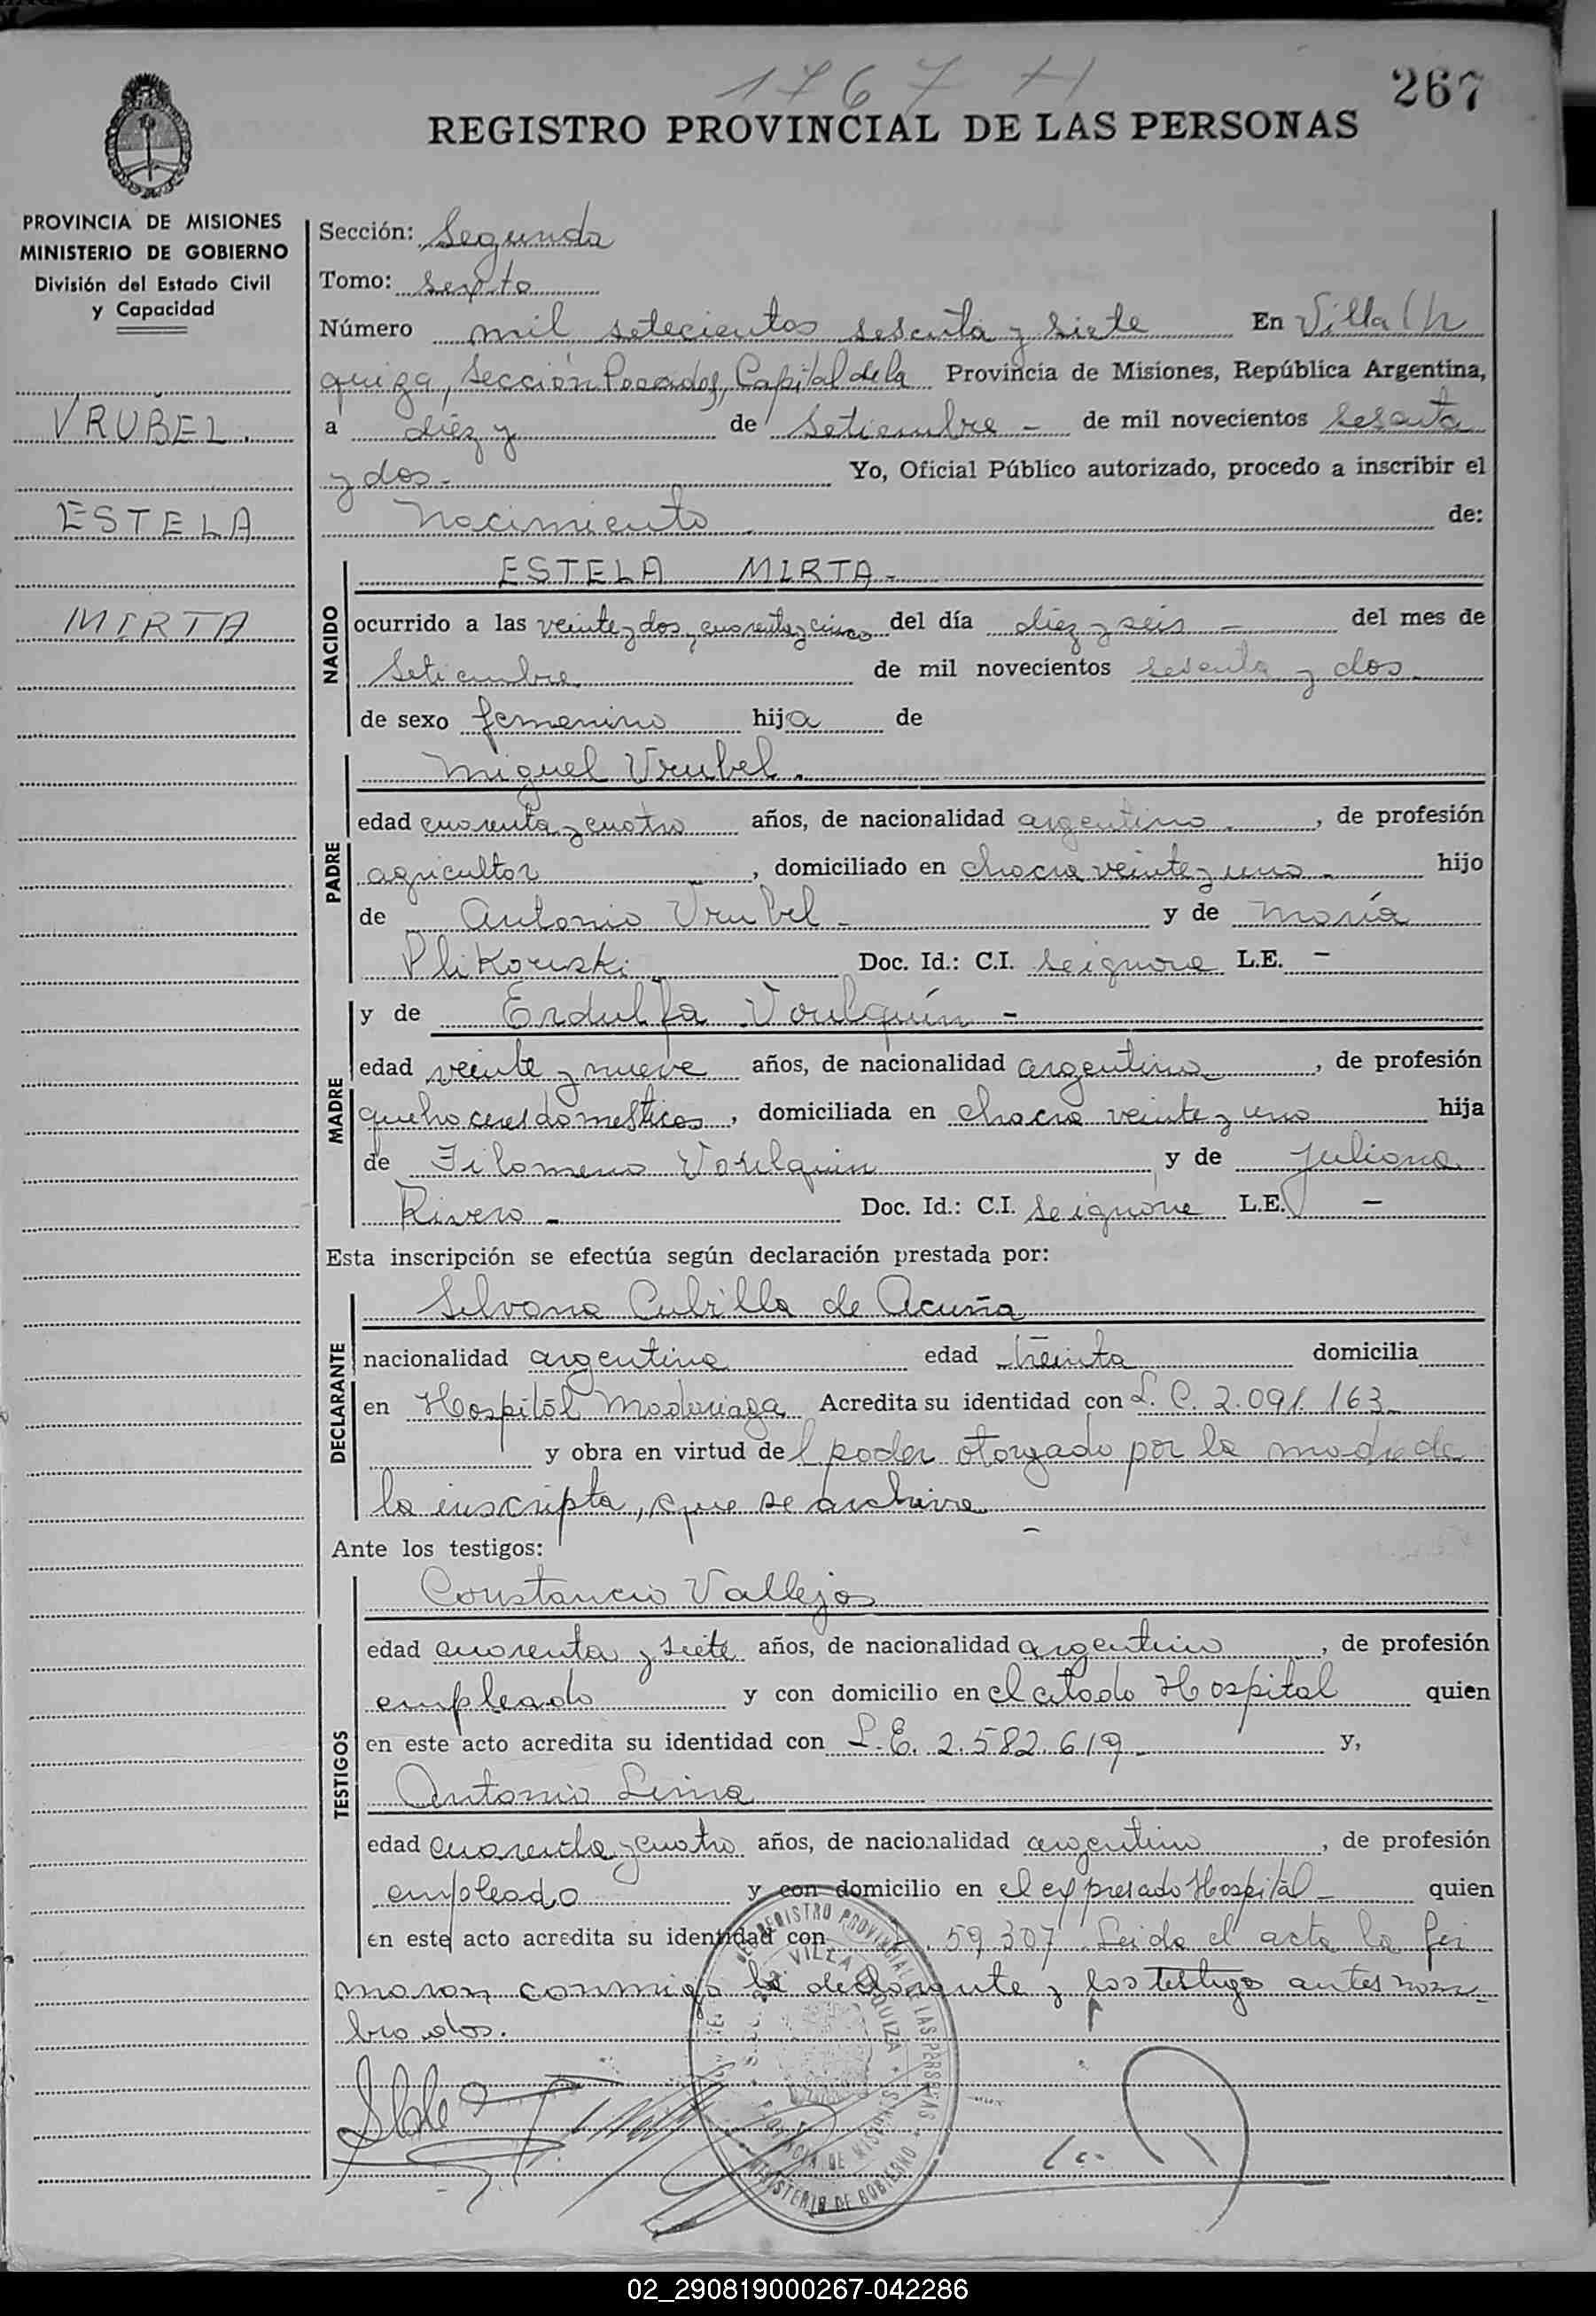 1767 H
267
REGISTRO PROVINCIAL DE LAS PERSONAS
PROVINCIA DE MISIONES
MINISTERIO DE GOBIERNO
División del Estado Civil
y Capacidad
VRUBEL.
ESTELA
MIRTA
Sección: Segunda
Tomo: Sexto
Número mil setecientos sesenta y siete En Villa Ur
quiza, Sección Posadas, Capital de la Provincia de Misiones, República Argentina,
a diez y de Setiembre - de mil novecientos sesenta
y dos. Yo, Oficial Público autorizado, procedo a inscribir el
Nacimiento de:
NACIDO
ESTELA MIRTA -
ocurrido a las veinte y dos, cuarenta y cinco del día diez y seis - del mes de
Setiembre de mil novecientos sesenta y dos
de sexo femenino hija de
PADRE
Miguel Vrubel.
edad cuarenta y cuatro años, de nacionalidad argentino, de profesión
agricultor, domiciliado en chacra veinte y uno - hijo
de Antonio Vrubel - y de María
Plikouski Doc. Id.: C.I. Se ignora L.E. -
MADRE
y de Erdulfa Voulquín -
edad veinte y nueve años, de nacionalidad argentina, de profesión
quehaceres domesticos, domiciliada en chacra veinte y uno hija
de Filomeno Voulquin y de Juliana
Rivero - Doc. Id.: C.I. Se ignora L.E. -
Esta inscripción se efectúa según declaración prestada por:
DECLARANTE
Silvana Cubilla de Acuña
nacionalidad argentina edad treinta domicilia
en Hospital Madariaga Acredita su identidad con L. C. 2.091.163
y obra en virtud del poder otorgado por la madre de
la inscripta, que se archiva
Ante los testigos:
TESTIGOS
Constancio Vallejos
edad cuarenta y siete años, de nacionalidad argentino, de profesión
empleado y con domicilio en el citado Hospital quien
en este acto acredita su identidad con L.E. 2.582.619 y,
Antonio Lima
edad cuarenta y cuatro años, de nacionalidad argentino, de profesión
empleado y con domicilio en el expresado Hospital - quien
en este acto acredita su identidad con 59.307 Leida el acta la fir
maron conmigo la declarante y los testigos antes nom-
brados.
REGISTRO PROVINCIAL DE LAS PERSONAS
VILLA URQUIZA
PROVINCIA DE MISIONES
MINISTERIO DE GOBIERNO
02_290819000267-042286